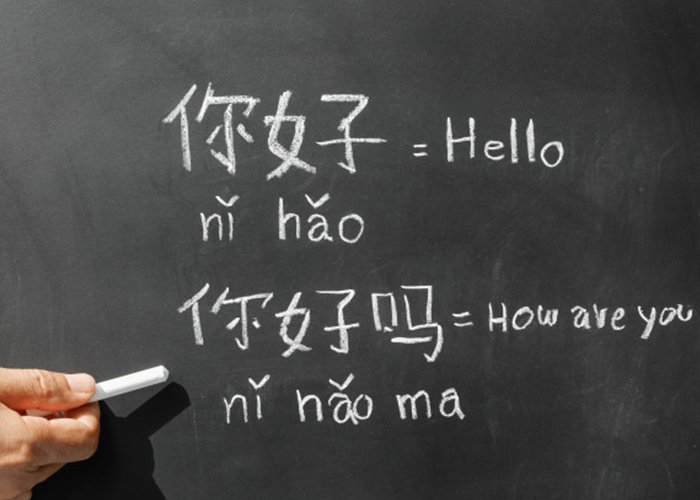 你好 = Hello
nǐ hǎo
你好吗 = How are you
nǐ hǎo ma